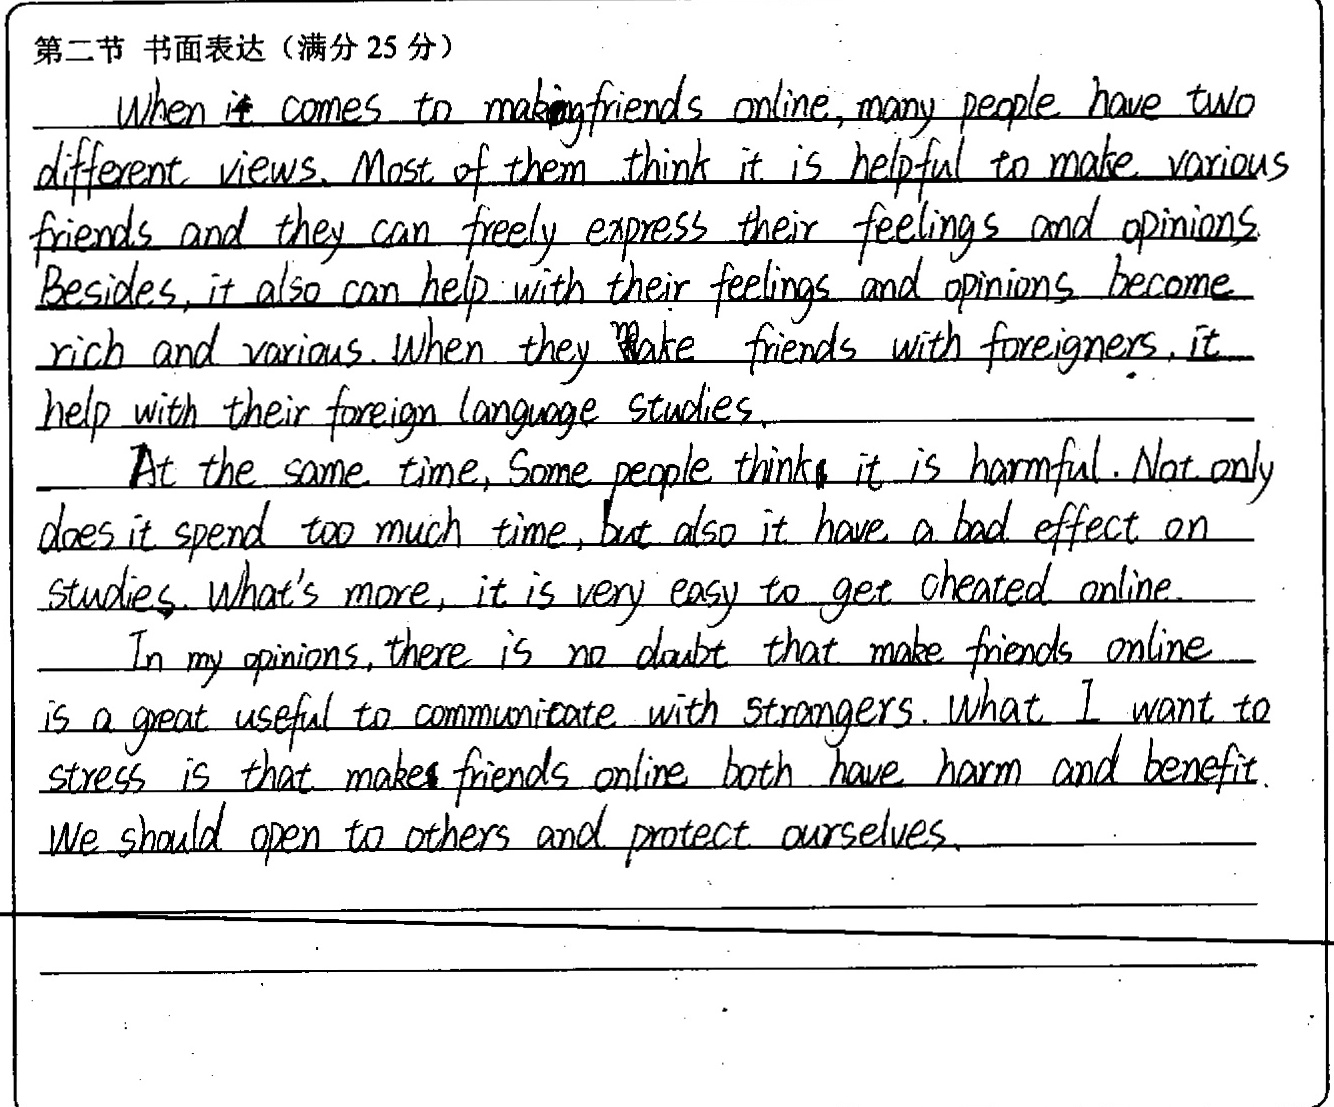 第二节 书面表达（满分 25 分）
When it comes to making friends online, many people have two
different views. Most of them think it is helpful to make various
friends and they can freely express their feelings and opinions.
Besides, it also can help with their feelings and opinions become
rich and various. When they make friends with foreigners, it
help with their foreign language studies.
At the same time, Some people think it is harmful. Not only
does it spend too much time, but also it have a bad effect on
studies. What's more, it is very easy to get cheated online.
In my opinions, there is no doubt that make friends online
is a great useful to communicate with strangers. What I want to
stress is that makes friends online both have harm and benefit.
We should open to others and protect ourselves.